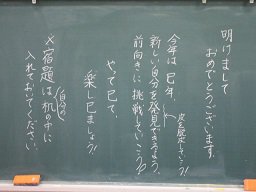 明けまして
おめでとうございます。
今年は巳年、
皮を脱皮していこう!
新しい自分を発見できるよう、
前向きに挑戦していこう!
やって巳て、
楽し巳ましょう!
自分の
×宿題は机の中に
入れておいてください。